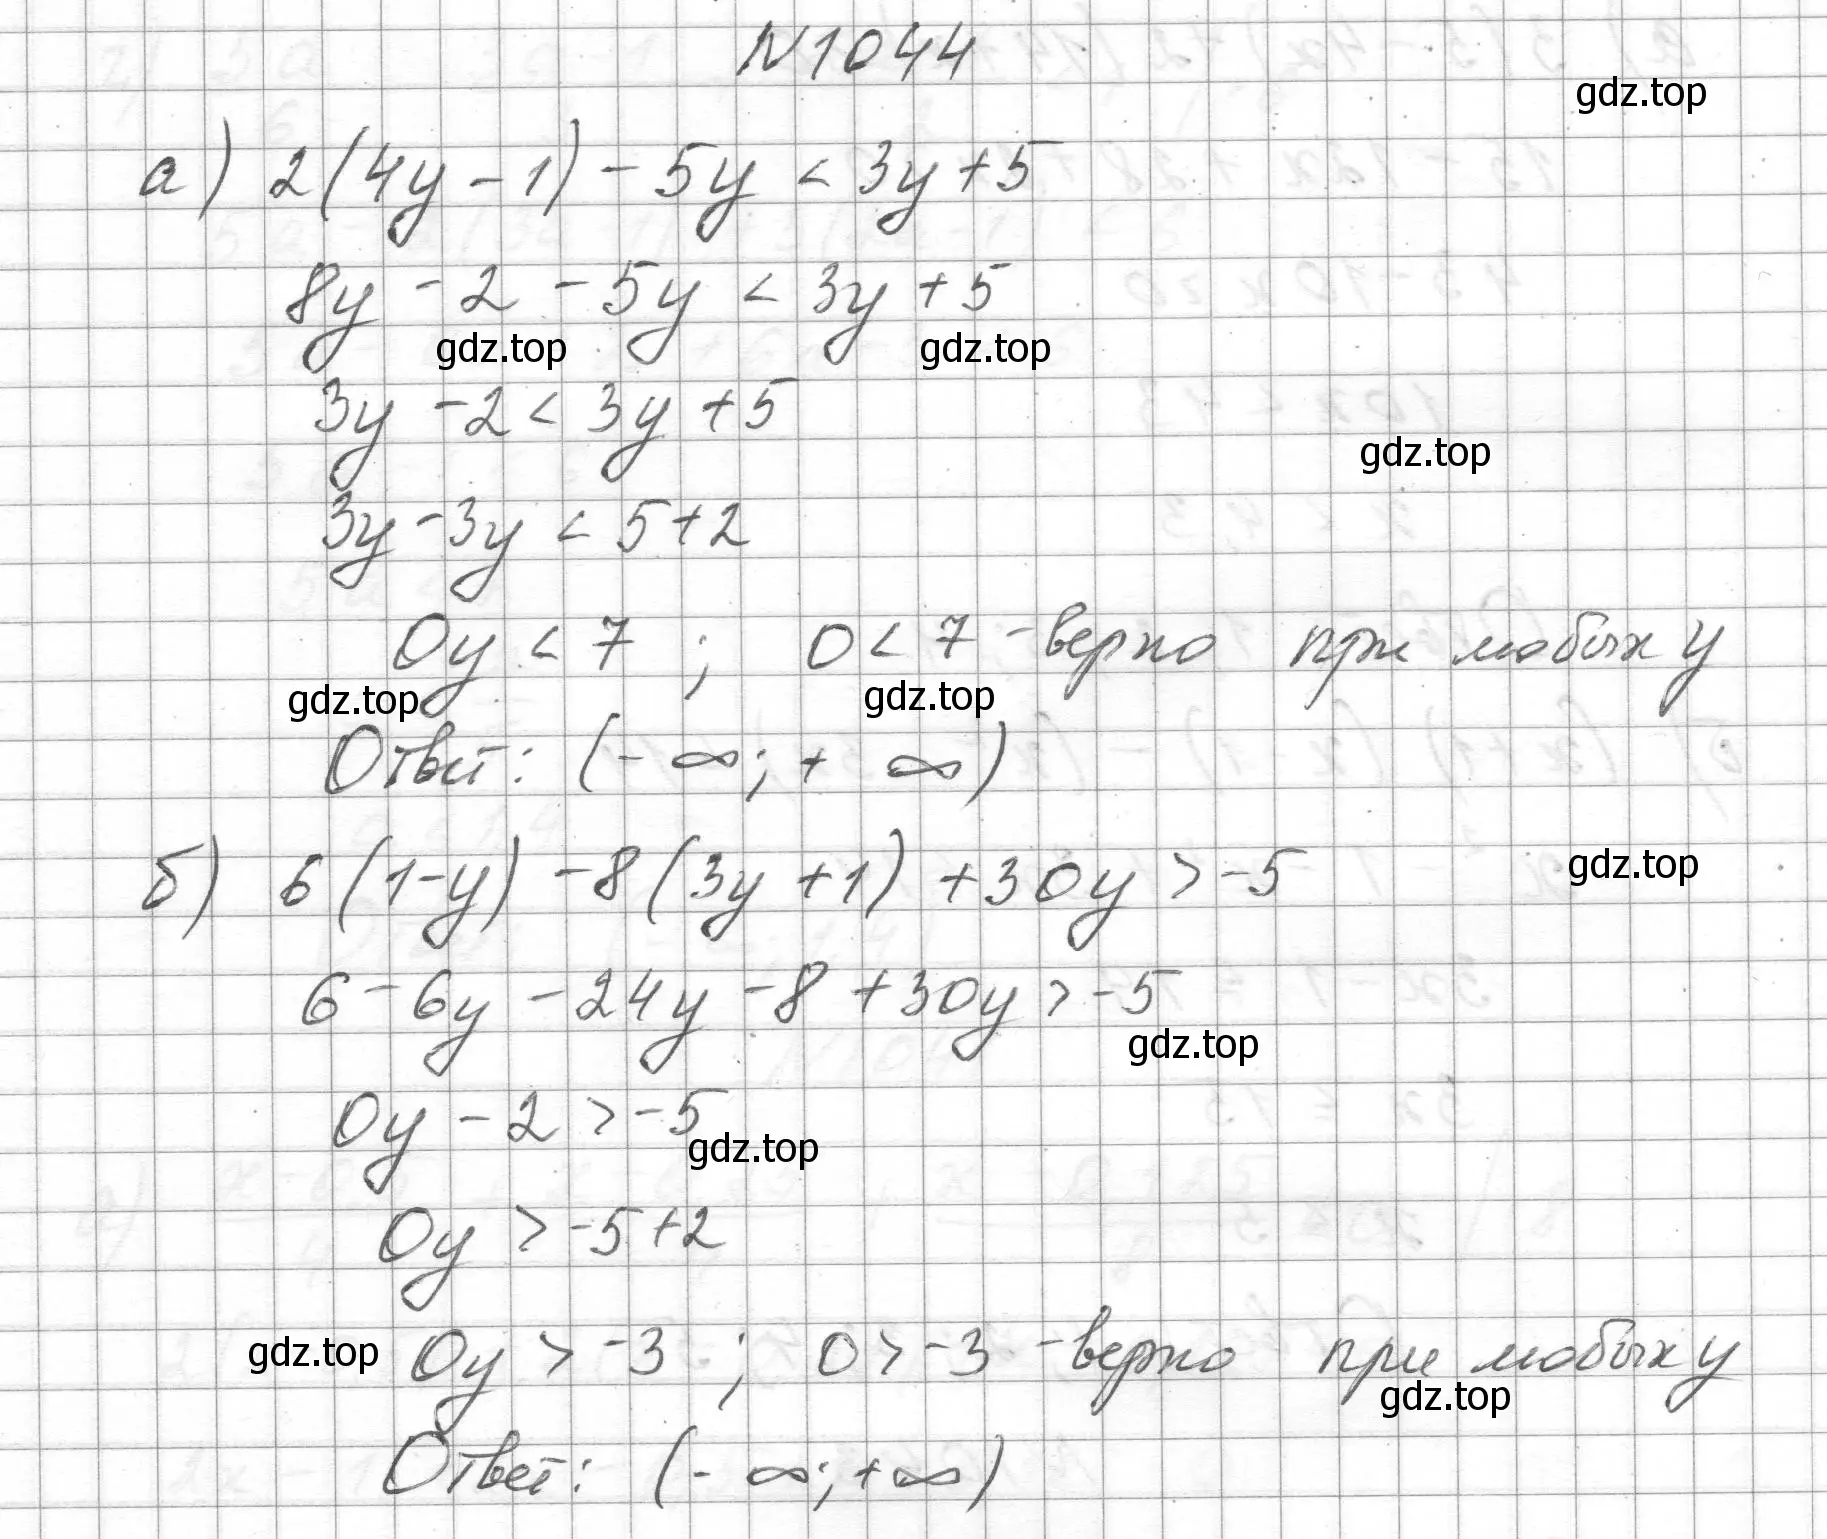 N1044
gdz.top
а) 2(4y - 1) - 5y < 3y + 5
8y - 2 - 5y < 3y + 5
gdz.top gdz.top
3y - 2 < 3y + 5
gdz.top
3y - 3y < 5 + 2
0y < 7 ; 0 < 7 - верно при любых y
gdz.top gdz.top
Ответ: (- ∞; + ∞)
б) 6(1-y) - 8(3y + 1) + 30y > -5
gdz.top
6 - 6y - 24y - 8 + 30y > -5
gdz.top
0y - 2 > -5
gdz.top
0y > -5 + 2
0y > -3 ; 0 > -3 - верно при любых y
gdz.top gdz.top
Ответ: (- ∞; + ∞)